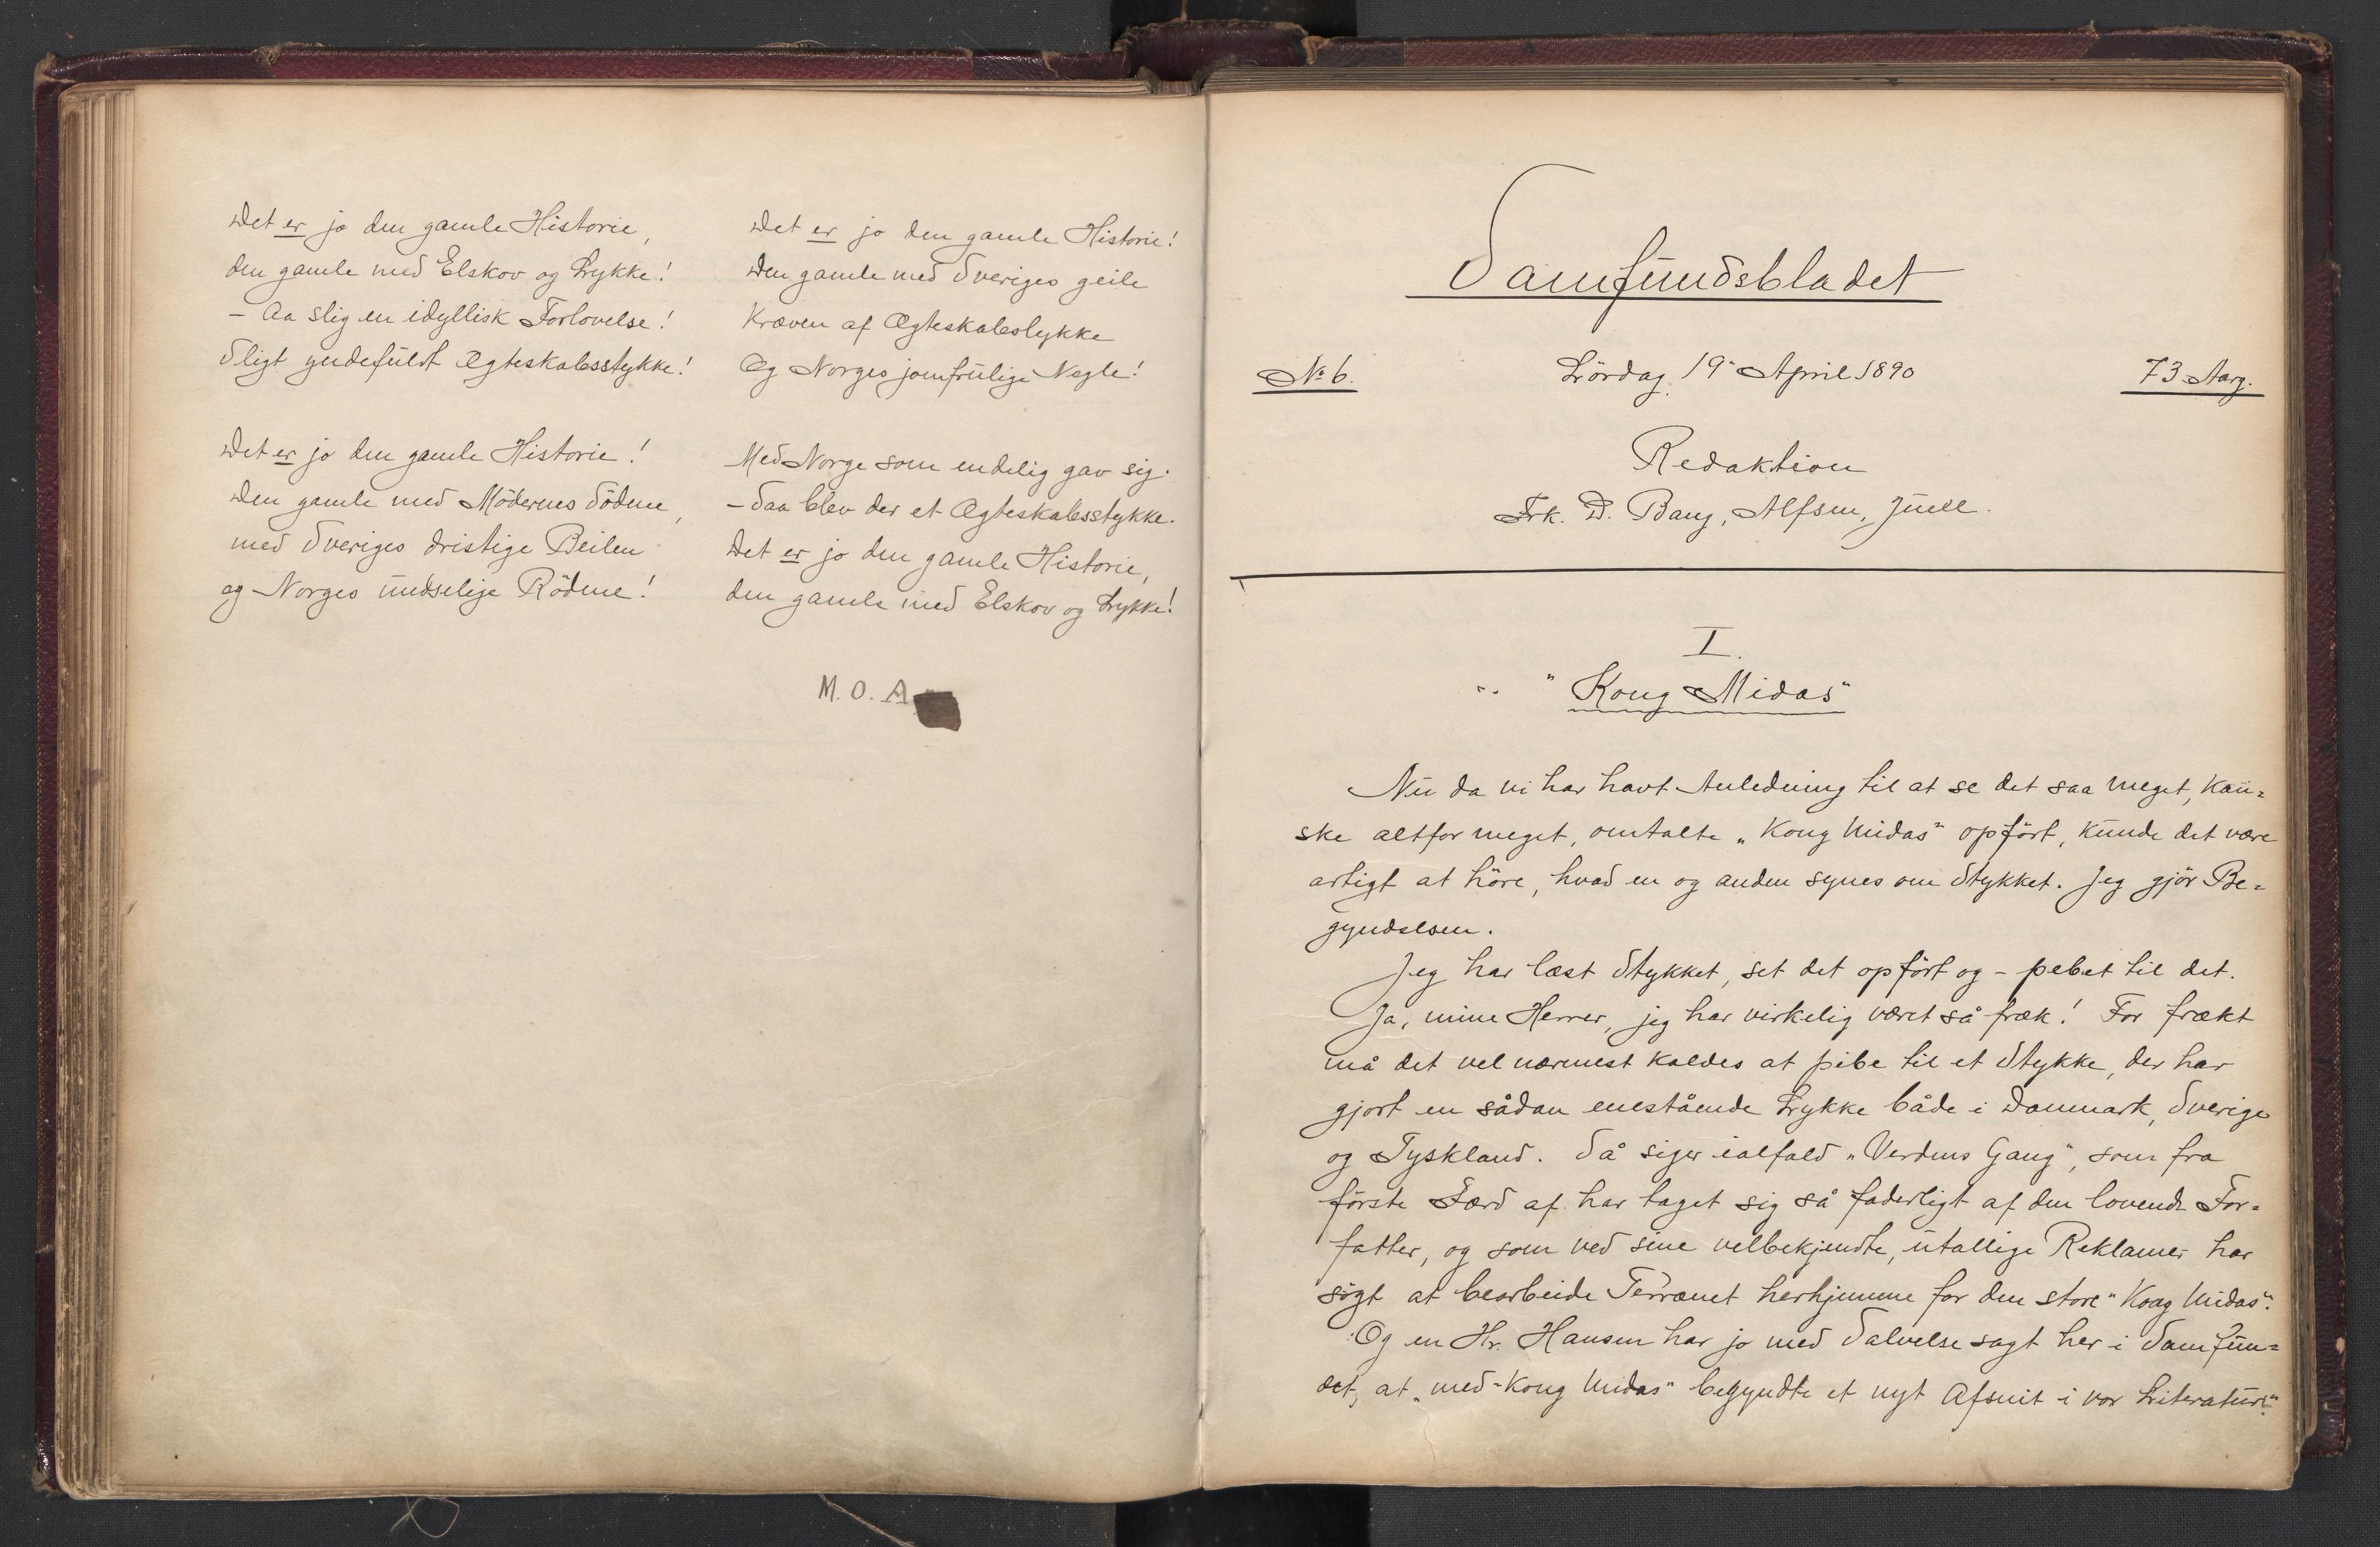 Det er jo den gamle Historie,
den gamle med Elskov og Lykke!
- Aa slig en idyllisk Forlovelse!
Sligt yndefuldt Ægteskabsstykke!
Det er jo den gamle Historie!
Den gamle med Mödernes Södme,
med Sveriges dristige Beilen
og Norges undselige Rödme!
Det er jo den gamle Historie!
Den gamle med Sveriges geile
Kræven af Ægteskabslykke
Og Norges jomfrulige Negle!
Med Norge som endelig gav sig.
- Saa blev der et Ægteskabsstykke.
Det er jo den gamle Historie,
den gamle med Elskov og Lykke!
M. O. A
Samfundsbladet
No 6.
Lördag 19 April 1890
73 Aarg.
Redaktion
Frk. D. Bang, Alfsen, Juell.
I.
"Kong Midas"
Nu da vi har havt Anledning til at se det saa meget, kan=
ske altfor meget, omtalte „Kong Midas" opfört, kunde det være
artigt at höre, hvad en og anden synes om Stykket. Jeg gjör Be=
gyndelsen.
Jeg har læst Stykket, set det opfört og - pebet til det.
Ja, mine Herrer, jeg har virkelig været så fræk! For frækt
må det vel nærmest kaldes at pibe til et Stykke, der har
gjort en sådan enestående Lykke både i Danmark, Sverige
og Tyskland. Så siger ialfald „Verdens Gang", som fra
förste Færd af har taget sig så faderligt af den lovende For=
fatter, og som ved sine velbekjendte, utallige Reklamer har
sögt at bearbeide Terrænet herhjemme for den store "Kong Midas".
Og en Hr. Hansen har jo med Salvelse sagt her i Samfun=
det, at „med Kong Midas" begyndte et nyt Afsnit i vor Literatur".